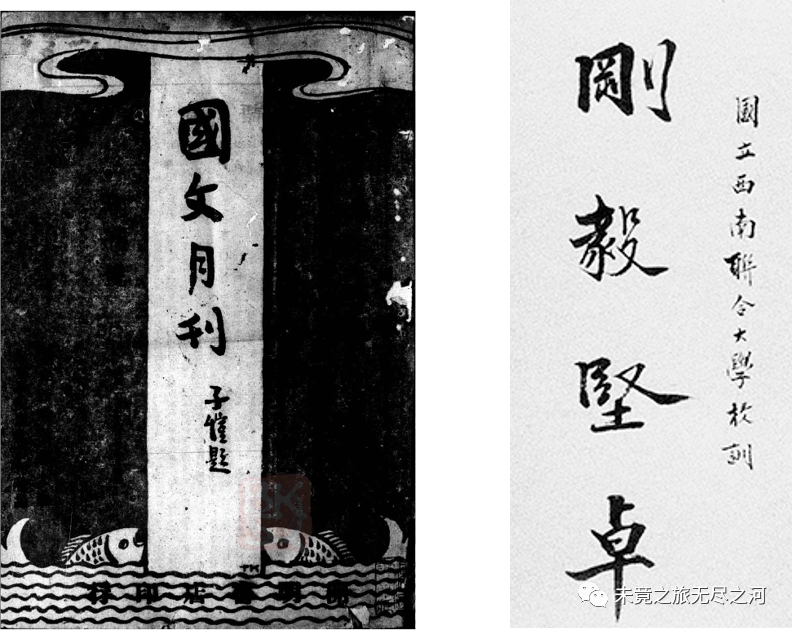 國文月刊
子愷題
TK
開明書店印行
國立西南聯合大學校訓
剛毅堅卓
未竟之旅无尽之河